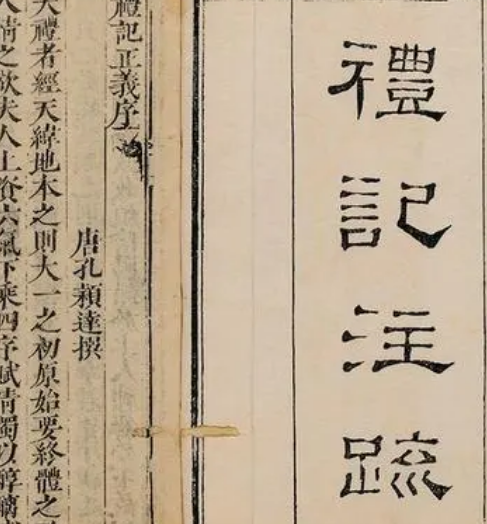 禮記注疏
禮記正義序
唐孔穎達撰
夫禮者經天緯地本之則大一之初原始要終體之
人情之欲夫人上資六氣下乘四序賦清濁以醇醨